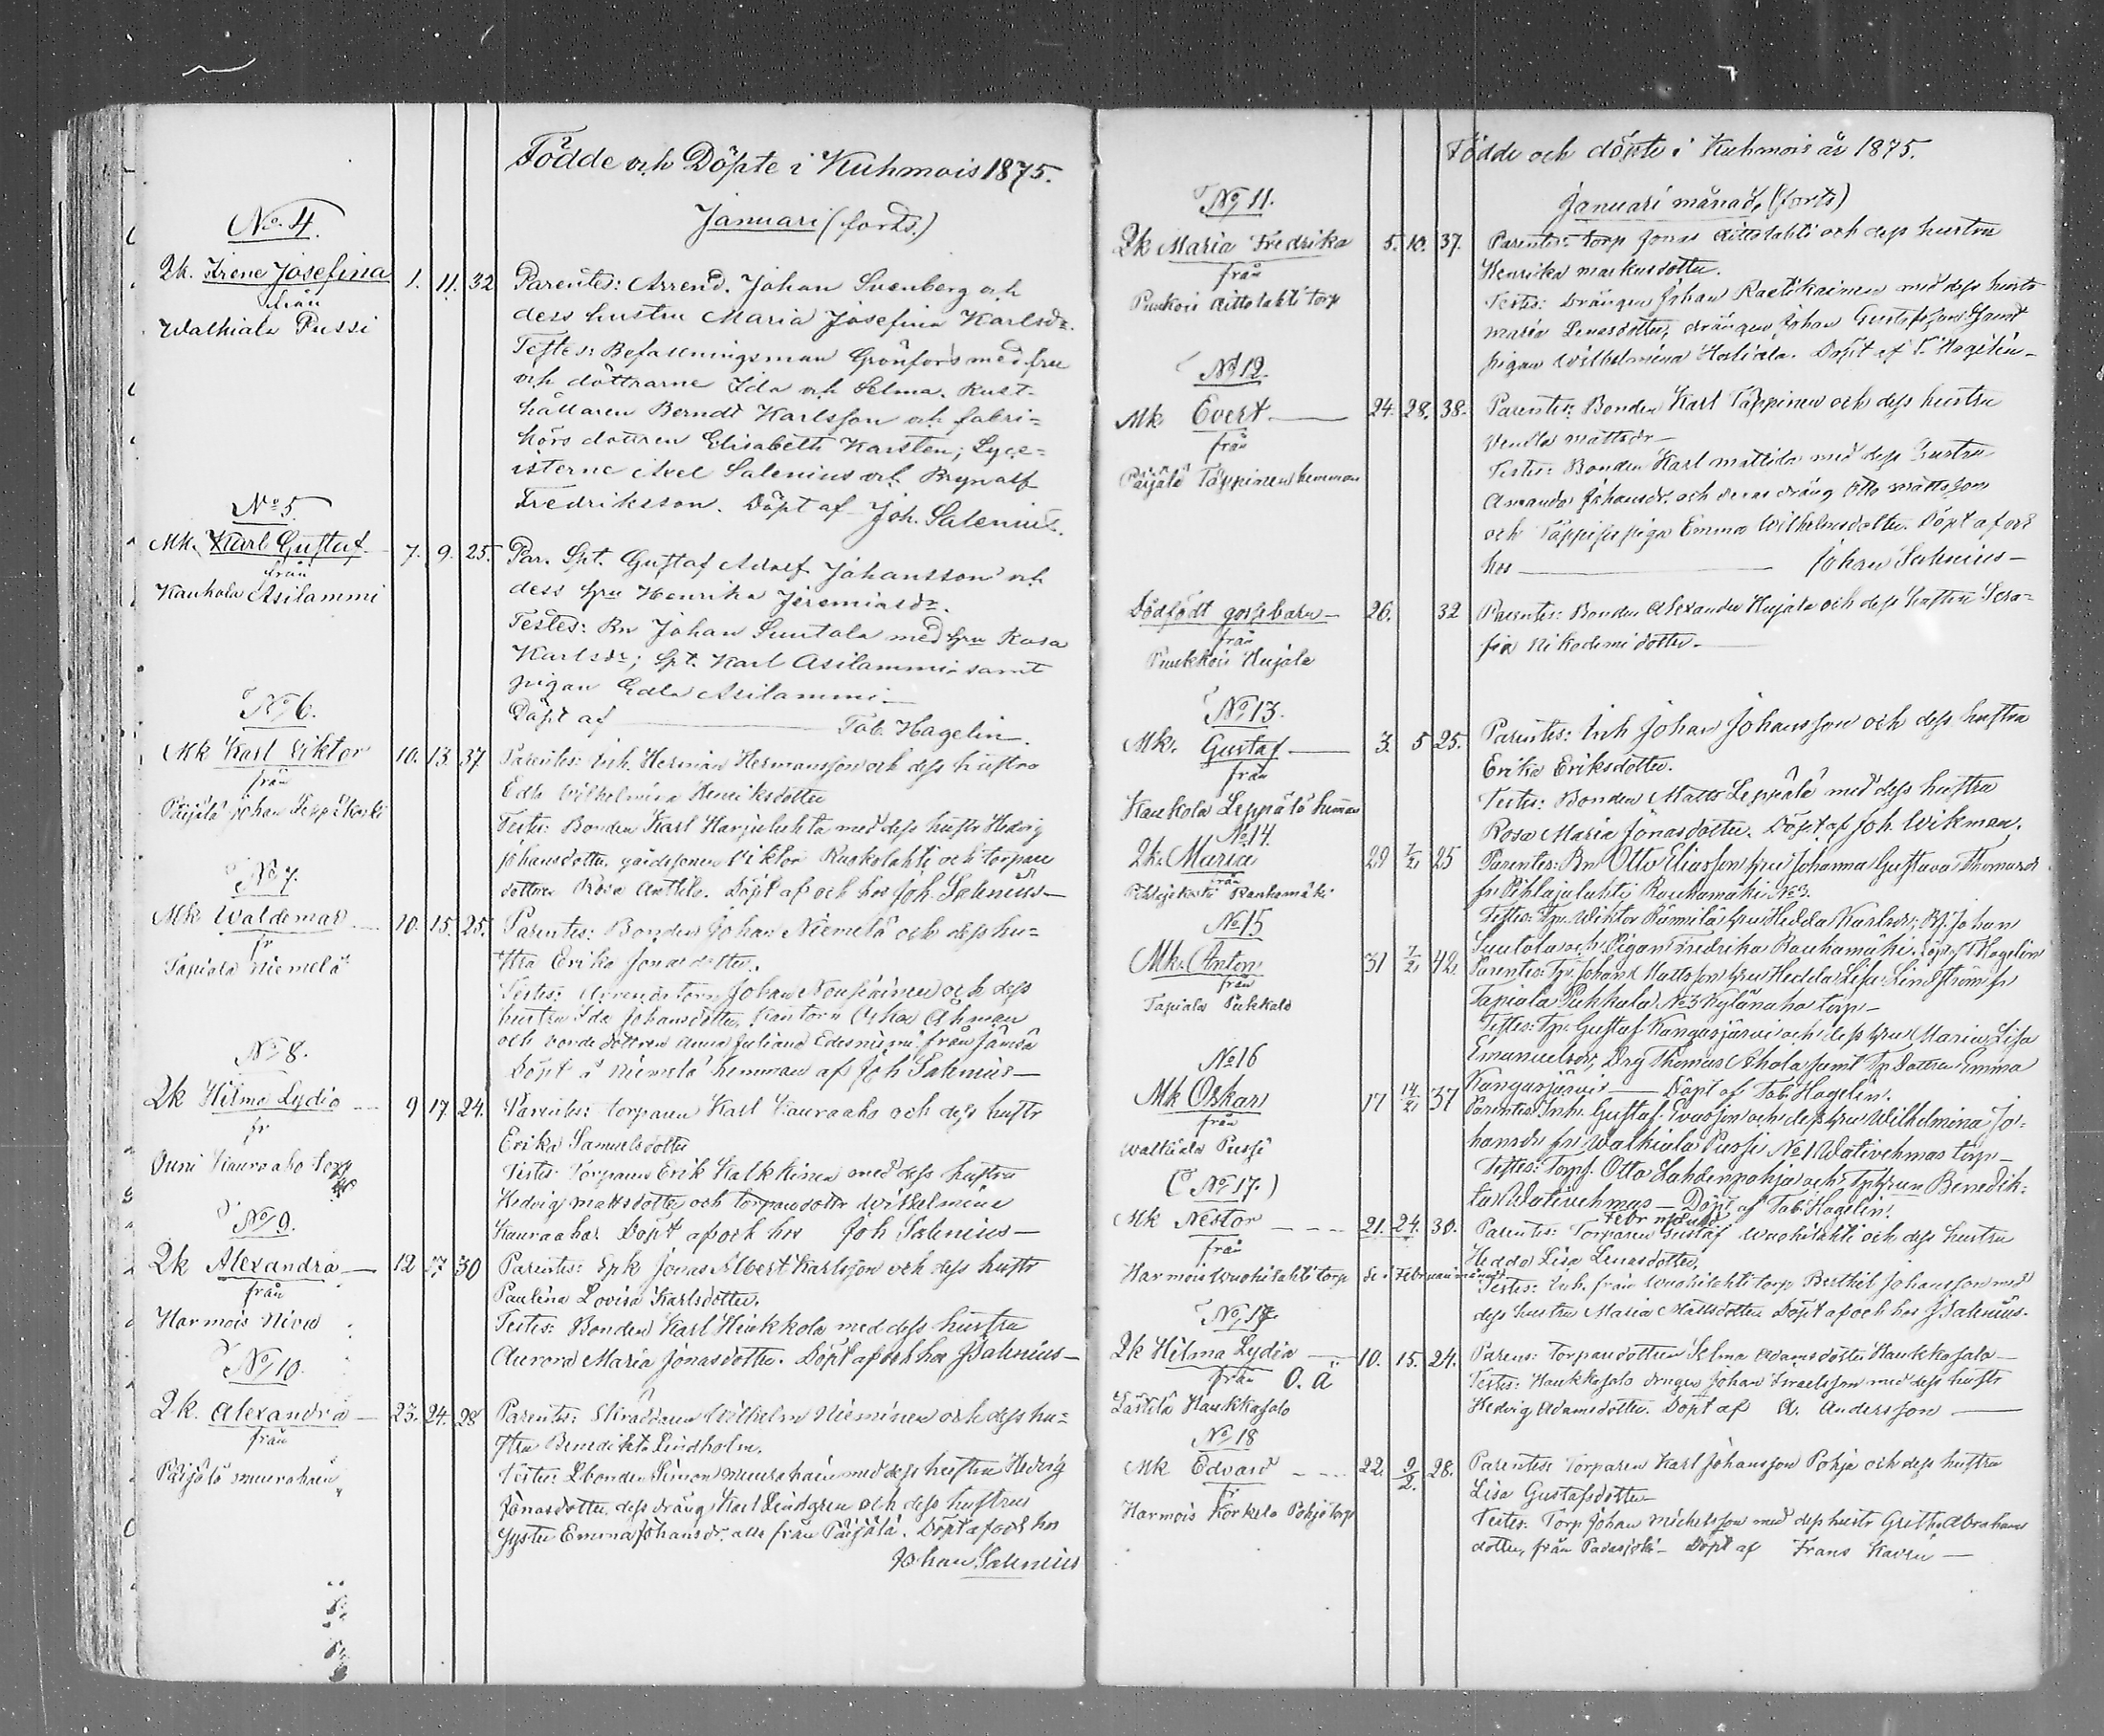 Födde och Döpte i Kuhmois 1875.
Januari (forts.)
No. 4.
Qk. Irene Josefina 1. 11. 32
från
Walkiala Pussi
Parentes: Arrend. Johan Svenberg och
dess hustru Maria Josefina Karlsdr.
Testes: Befallningsman Grönfors med fru
och döttrarne Ida och Selma. Rust-
hållaren Berndt Karlsson och fabri-
körs dottren Elisabeth Karsten; Lyce-
isterne Axel Salenius och Brynolf
Fredriksson. Döpt af Joh. Salenius.
No 5.
Mk. Karl Gustaf 7. 9. 25.
från
Kaukola Asilammi
Par. Spt. Gustaf Adolf Johansson och
dess hru Henrika Jeremiasdr.
Testes: Bn Johan Suutala med hru Rosa
Karlsdr; Spt. Karl Asilammi samt
pigan Edla Asilammi
Döpt af — Tab. Hagelin.
No 6.
Mk Karl Viktor 10. 13. 37
från
Päijälä Johan
Parentes: Inh. Herman Hermansson och dess hustru
Edla Wilhelmina Henriksdotter
Testes: Bonden Karl Harjulahta med dess hustr Hedvig
Johansdotter, Viktor Ruokolahti och torpare
dottren Rosa Anttila. Döpt af och hos Joh. Salenius —
No 7.
Mk Waldemar — 10. 15. 25.
fr
Tapiala Niemelä
Parentes: Bonden Johan Niemelä och dess hu-
stru Erika Jonasdotter.
Testes: Arrendatorn Johan Nousiainen och dess
hustru Ida Johansdotter, Kantorn Oskar Åhman
och dottren Anna Juliana Edesniemi från Jämsä
Döpt å Niemelä hemman af Joh Salenius —
No 8.
Qk Hilma Lydia — 9 17. 24.
fr
Ouni Kauraaho torp
Parentes: torparen Karl Kauraaho och dess hustr
Erika Samuelsdotter
Testes: Torparen Erik Kalkkinen med dess hustru
Hedvig Mattsdotter och torparedottr Wilhelmina
Kauraaho. Döpt af och hos Joh Salenius —
No 9.
Qk Alexandra — 12 17 30
från
Harmois Niva
Parentes: Spk Jonas Albert Karlsson och dess hustr
Paulina Lovisa Karlsdotter.
Testes: Bonden Karl Heikkola med dess hustru
Aurora Maria Jonasdotter. Döpt af och hos J Salenius —
No 10.
Qk. Alexandra — 23. 24. 28
från
Päijälä
Parentes: Skräddaren Wilhelm Nieminen och dess hu-
stru Benedikta Lindholm.
Testes: Bonden Simon med dess hustru Hedvig
Jonasdotter, dess dräng Karl Lindgren och dess hustrus
Syster Emma Johansdr. alla från Päijälä. Döpt af och hos
Johan Salenius
Födde och döpte i Kuhmois år 1875.
Januari månad, (forts)
No 11.
Qk Maria Fredrika 5. 10. 37.
från
Puukois Aittolahti torp
Parentes: torp Jonas Aittolahti och dess hustru
Henrika Markusdotter.
Testes: Drängen Johan Raetikainen med dess hustr
Maria Lenasdotter, drängen Johan Gustafsson samt
pigan Wilhelmina Halivala. Döpt af T. Hagelin —
No 12.
Mk Evert — 24. 28. 38.
från
Päijälä Täppinen hemman
Parentes: Bonden Karl Täppinen och dess hustru
Vendla Mattsdr —
Testes: Bonden Karl Mattila med dess hustru
Amanda Johansdr. och deras dräng Otto Mattsson
och piga Emma Wilhelmsdotter. Döpt af och
hos — Johan Salenius —
Dödfödt gossebarn — 26. 32
från
Puukkois Hujala
Parentes: Bonden Alexander Hujala och dess hustru Sera-
fia Nikodemidotter. —
No 13.
Mk. Gustaf — 3. 5 25.
från
Kaukola Leppälä Hemman
Parentes: Inh Johan Johansson och dess hustru
Erika Eriksdotter.
Testes: Bonden Matts Leppälä med dess hustru
Rosa Maria Jonasdotter. Döpt af Joh. Wikman.
No 14.
Qk. Maria 29 7/2 25
från
Rauhamäki
Parentes: Bn Otto Eliasson hru Johanna Gustava Thomasdr
fr. Pihlajalahti Rauhamäki No 3.
Testes: Tp. Wiktor Rämilä hru Hedda Karlsdr; Johan
Suutala och Pigan Fredrika Rauhamäki. Döpt. T Hagelin
No 15
Mk. Anton 31 7/2 42.
från
Tapiala Pukkala
Parentes: Tp. Johan Mattsson hru Hedda Lisa Lindström fr
Tapiala Pukkala No 3 Kylänaho torp —
Testes: Tp. Gustaf Kangasjärvi och dess hru Maria Lisa
Emanuelsdr, Drg Thomas Ahola samt Tp Dottren Emma
Kangasjärvi — Döpt af Tab. Hagelin.
No 16
Mk Oskar 17 14/2 37
från
Walkiala Pussi
Parentes: Inh. Gustaf Evasson och dess hru Wilhelmina Jo-
hansdr fr Walkiala Pussi No 1 Wativehmas torp —
Testes: Torp. Otto Lahdenpohja och Tp hrun Benedik-
ta Wativehmas — Döpt af Tab. Hagelin.
(No 17.)
Mk Nestor — 21. 24. 30.
från
Harmois Wuohilahti torp
Se i Februari månad
Febr månad
Parentes: Torparen Gustaf Wuohilahti och dess hustru
Hedda Lisa Lenasdotter,
Testes: Inh. från Wuohilahti torp Berthel Johansson med
dess hustru Maria Mattsdotter Döpt af och hos J Salenius.
No 17.
Qk Hilma Lydia — 10. 15. 24.
från O. ä
Lästilä Haukkasalo
Parens: torpardottren Selma Adamsdotter Haukkasalo —
Testes: Haukkasalo drengen Johan Israelsson med dess hustr
Hedvig Adamsdotter. Döpt af A. Andersson —
No 18
Mk Edvard — 22. 9/2. 28.
fr
Harmois Korkela Pohja torp
Parentes: Torparen Karl Johansson Pohja och dess hustru
Lisa Gustafsdotter
Testes: Torp Johan Michelsson med dess hustr Greta Abrahams
dotter, från Padasjoki — Döpt af Frans Kaven —